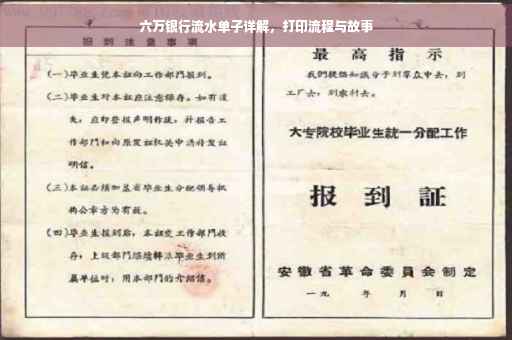 六万银行流水单子详解，打印流程与故事
报到注意事项
(一)毕业生凭本证向工作部门报到。
(二)毕业生对本证应注意保存。如有遗
失，应即登报声明作废，并报告工
作部门和向原发证机关申请补发证
明信。
(三)本证必须加盖省毕业生分配领导机
构公章方为有效。
(四)毕业生报到后，本证交工作部门收
存；上级部门继续转派毕业生到所
属单位时，用本部门的介绍信。
最高指示
我们提倡知识分子到群众中去，到
工厂去，到农村去。
大专院校毕业生統一分配工作
报到証
安徽省革命委員会制定
一九 年 月 日